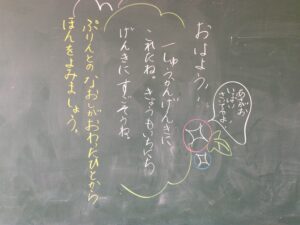 おはよう!
一しゅうかんげんきに、
これたね。きょうもいちにち
げんきにすごそうね。
ぷりんとの なおしがおわったひとから
ほんをよみましょう。
えがお
いっぱい